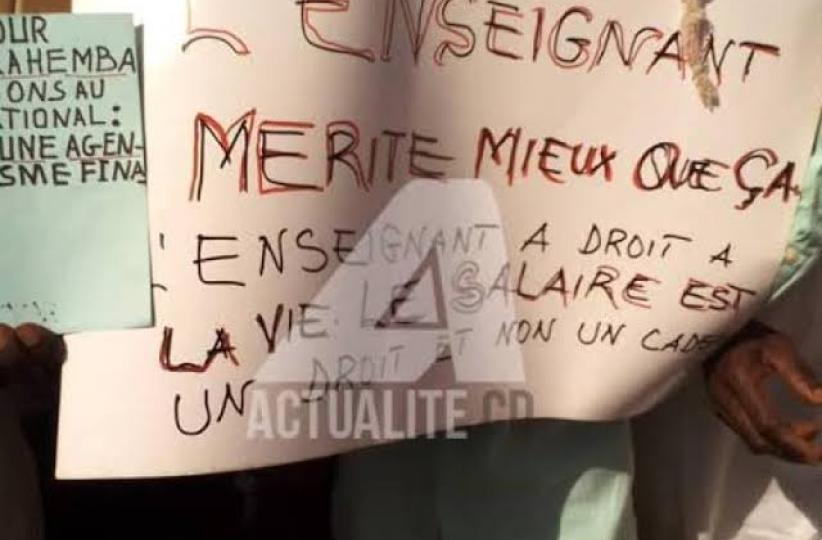 OUR
KAHEMBA
ONS AU
TIONAL:
UNE AGEN-
SME FINA
L'ENSEIGNANT
MERITE MIEUX QUE ÇA.
L'ENSEIGNANT A DROIT A
LA VIE. LE SALAIRE EST
UN DROIT ET NON UN CADE
ACTUALITE.CD